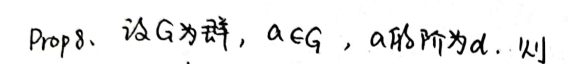 Prop8、设G为群，a∈G，a的阶为d．则